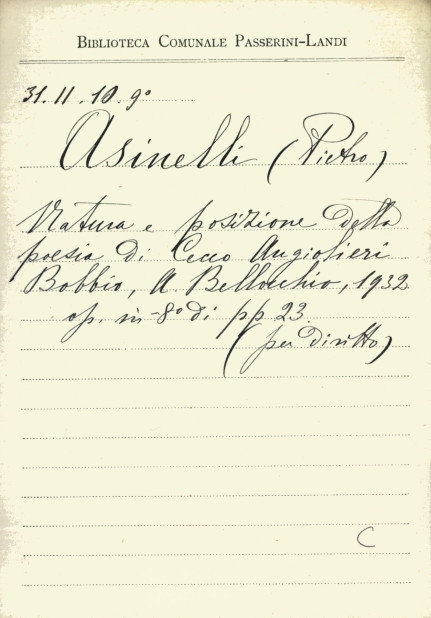 BIBLIOTECA COMUNALE PASSERINI-LANDI
31.II.10.9°
Asinelli (Pietro)
Natura e posizione della
poesia di Cecco Angiolieri
Bobbio, A. Bellocchio, 1932
op. in-8° di pp 23.
(per diritto)
C